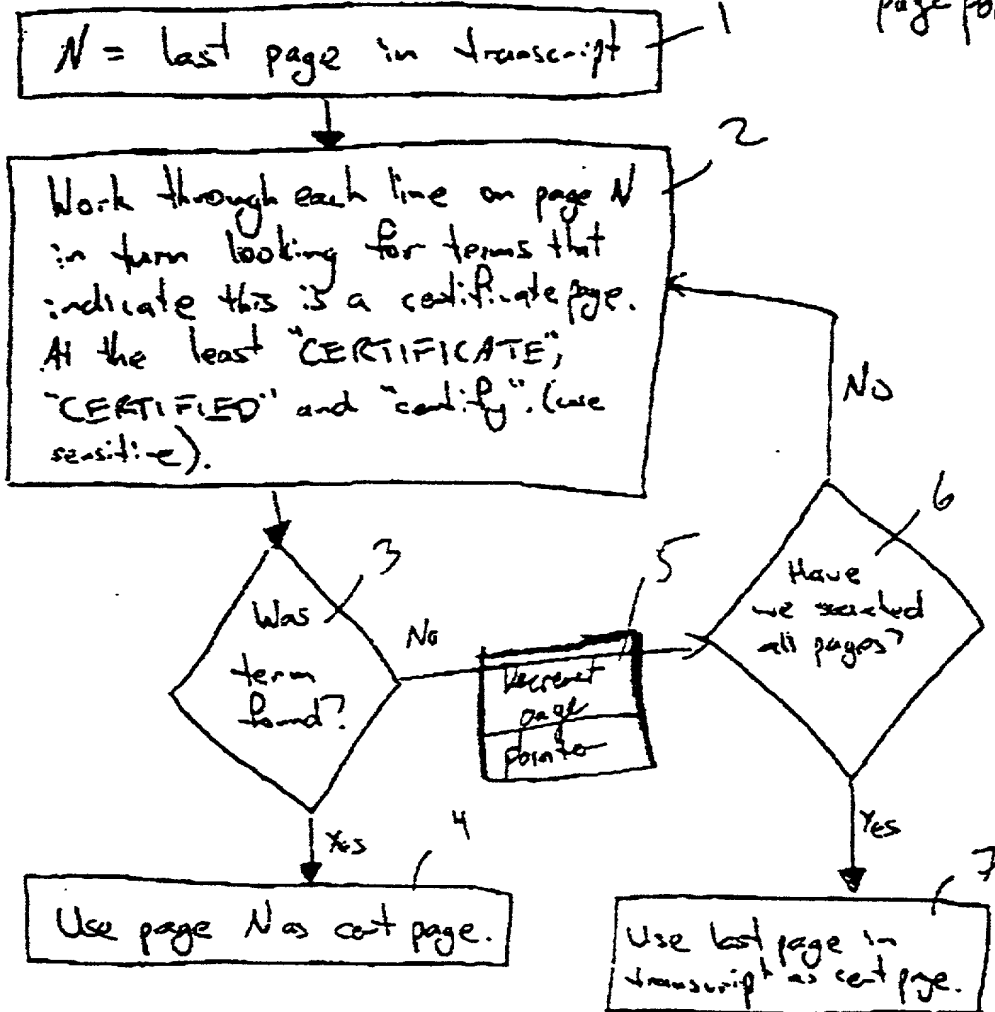 page
N = last page in transcript
1
2
Work through each line on page N
in turn looking for terms that
indicate this is a certificate page.
At the least "CERTIFICATE",
"CERTIFIED" and "certify". (case
sensitive).
No
3
Was
term
found?
No
5
Decrement
page
pointer
6
Have
we searched
all pages?
Yes
4
Use page N as cert page.
Yes
7
Use last page in
transcript as cert page.